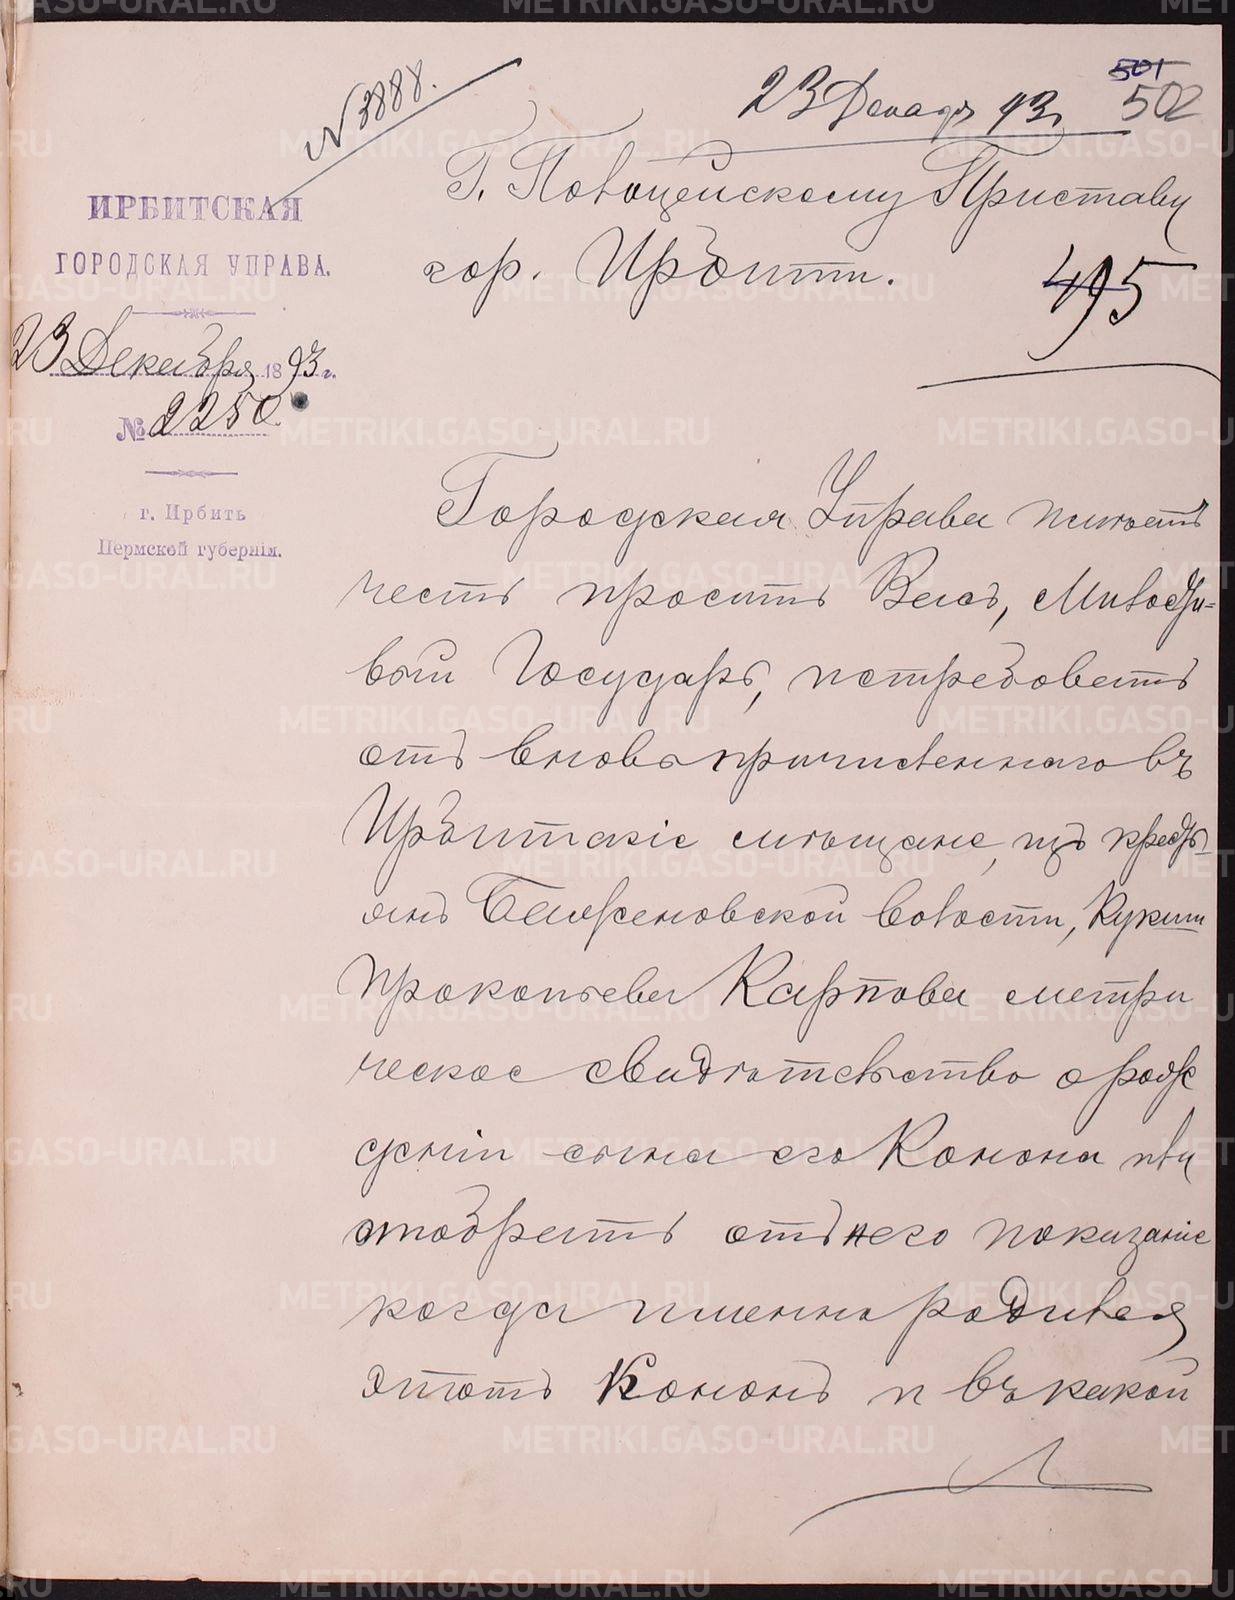 501
502
N 3888.
23 Декабр 93 г.
ИРБИТСКАЯ
ГОРОДСКАЯ УПРАВА.
23 Декабря 1893 г.
№ 2250.
г. Ирбить
Пермской губерніи.
Г. Полицейскому Приставу
гор. Ирбити.
495
Городская Управа имѣетъ
честь просить Васъ, Милости-
вый Государь, истребовать
отъ вновь причисленнаго въ
Ирбитскіе мѣщане, изъ кресть-
янъ Баженовской волости,
Прокопьева Карпова метри
ческое свидѣтельство о рож
деніи сына его Конона или
отобрать отъ него показаніе
когда именно родился
этотъ Кононъ и въ какой
METRIKI.GASO-URAL.RU